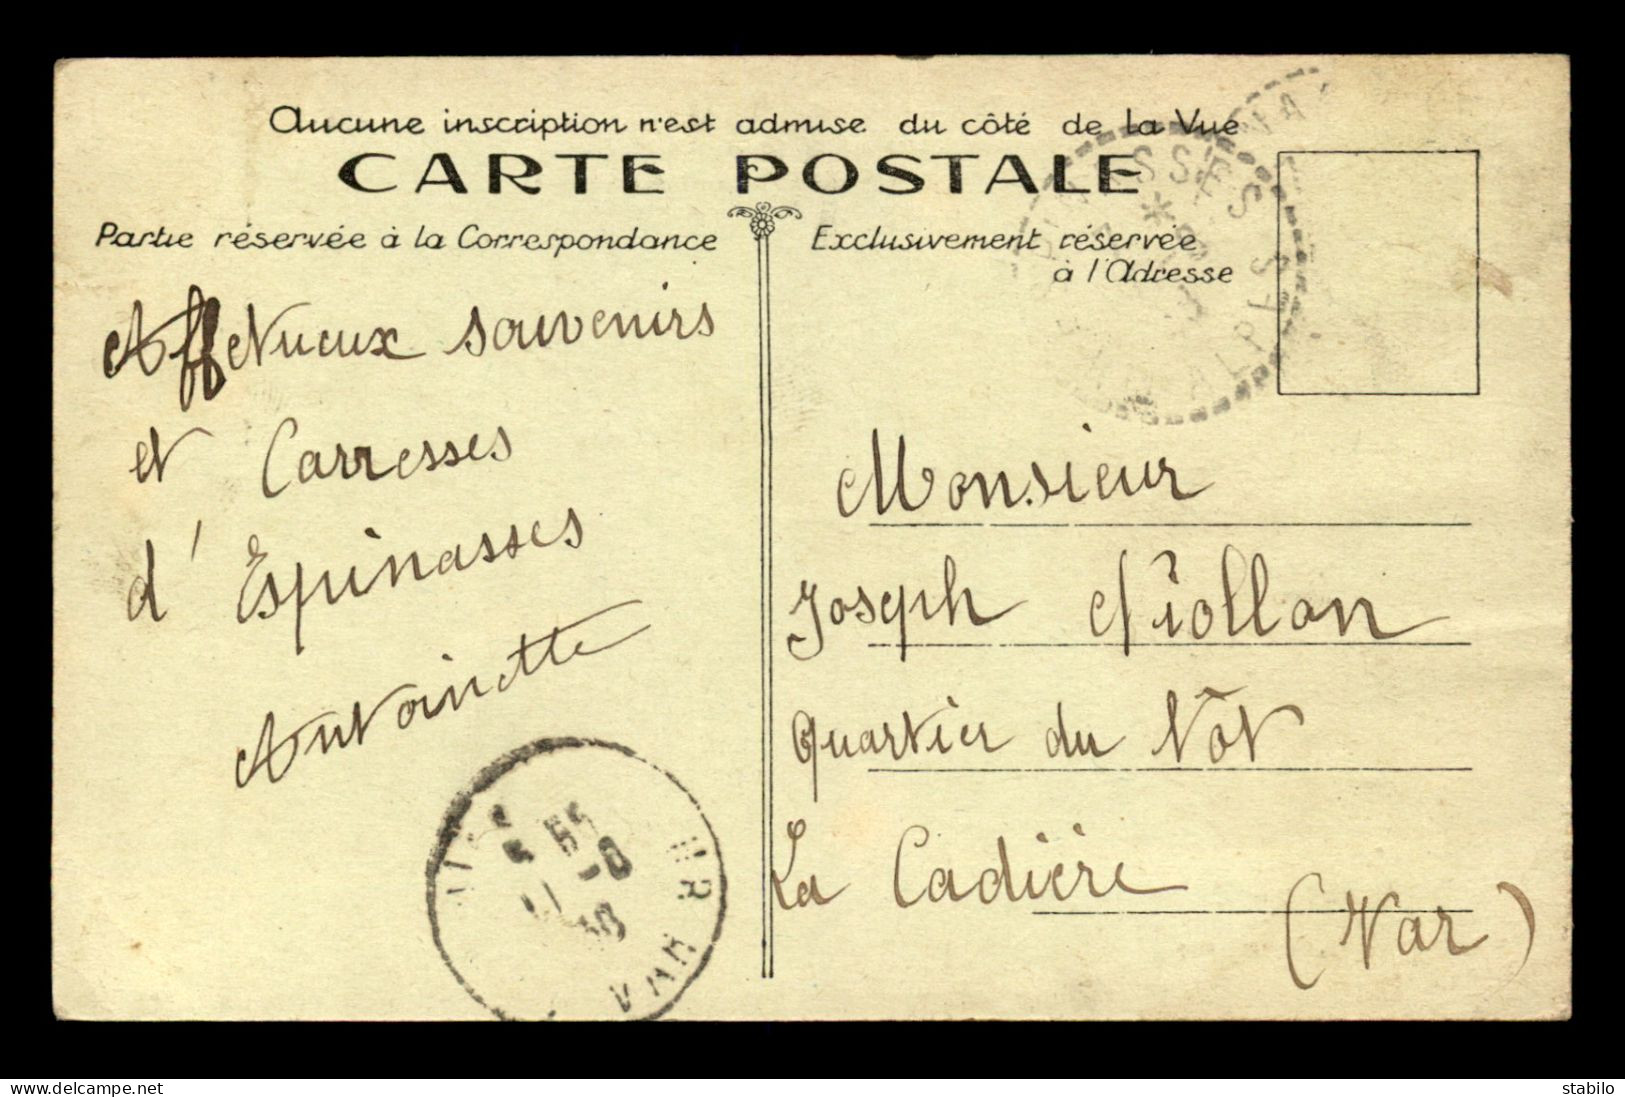 Aucune inscription n'est admise du côté de la Vue
CARTE POSTALE
Partie réservée à la Correspondance
Exclusivement réservée
à l'Adresse
Affetueux souvenirs
et Carresses
d'Espinasses
Antoinette
Monsieur
Joseph
Quartier du
La Cadière
(Var)
VAR
ALPES
delcampe.net
stabilo